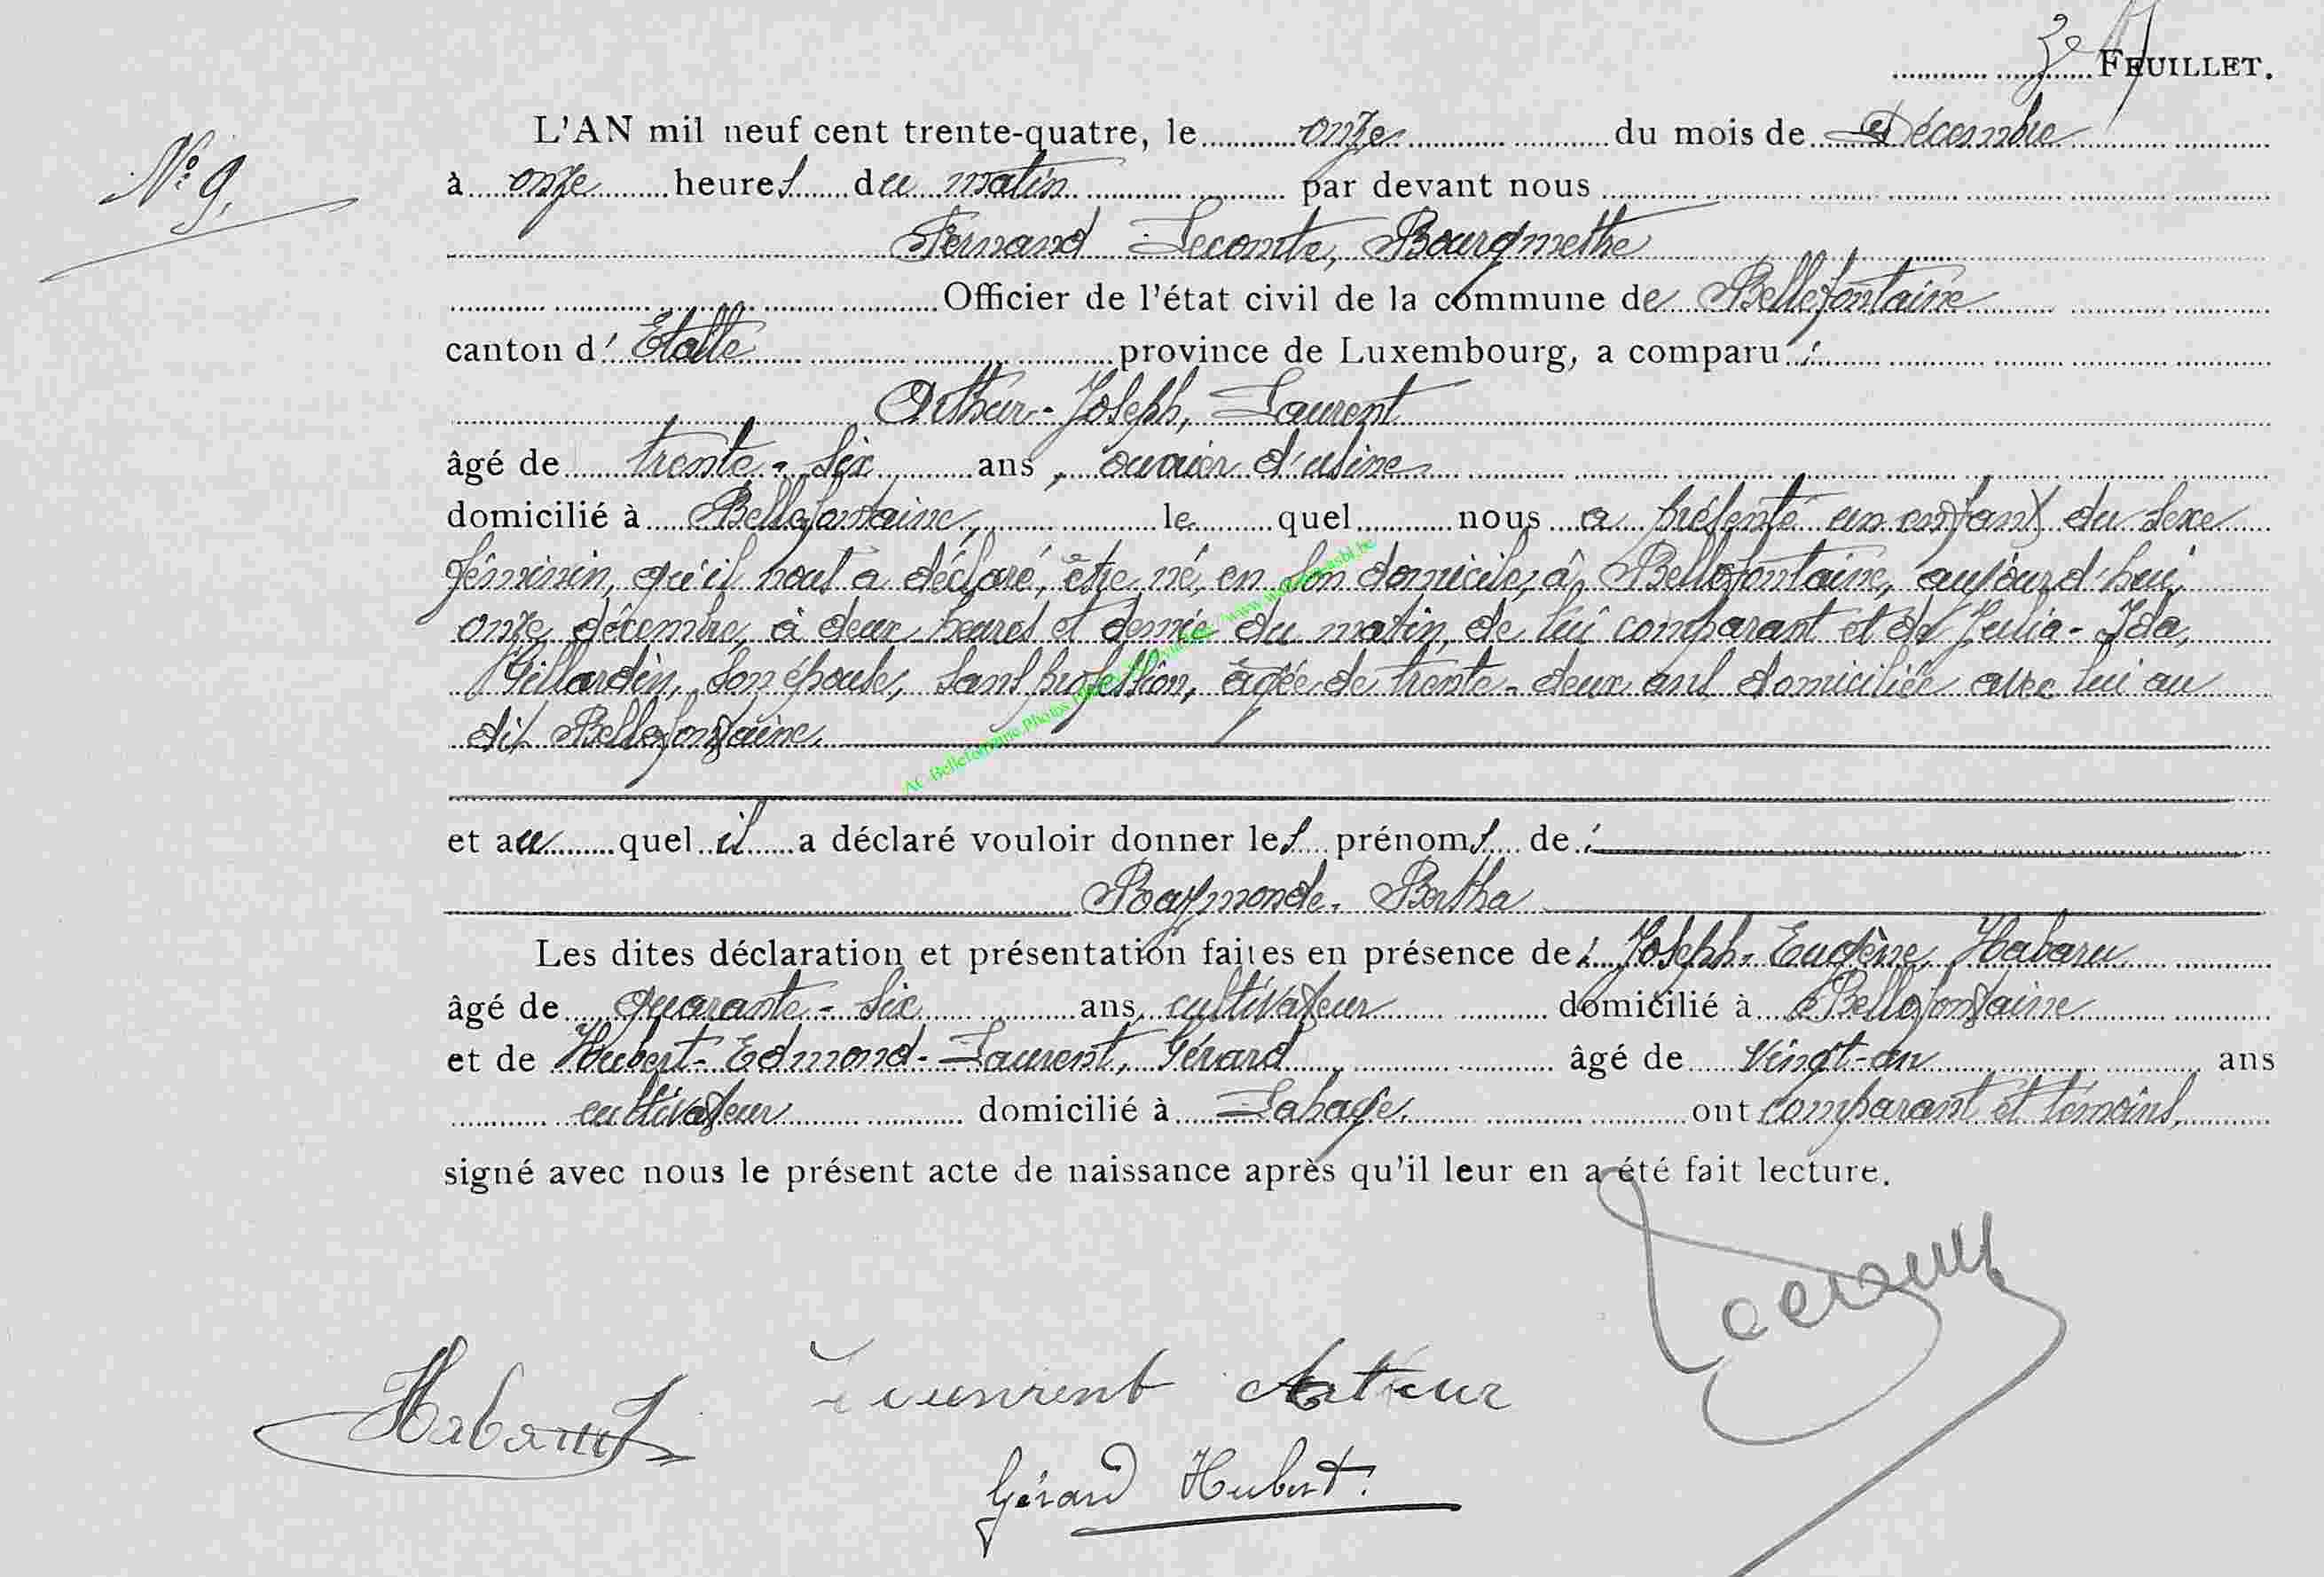 5e FEUILLET.
L'AN mil neuf cent trente-quatre, le onze du mois de Décembre
N° 9.
à onze heures du matin par devant nous
Fernand Lecomte, Bourgmestre
Officier de l'état civil de la commune de Bellefontaine
canton d' Etalle province de Luxembourg, a comparu :
Arthur-Joseph, Laurent
âgé de trente-six ans, ouvrier d'usine
domicilié à Bellefontaine, le quel nous a présenté un enfant du sexe
féminin, qu'il nous a déclaré, être né, en son domicile, à Bellefontaine, aujourd'hui,
onze décembre, à deux heures et demie du matin, de lui comparant et de Julia-Ida,
Gillardin, son épouse, sans profession, âgée de trente-deux ans domiciliée avec lui au
dit Bellefontaine.
AC Bellefontaine Photos
et au quel il a déclaré vouloir donner les prénoms de :
Raymonde-Bertha
Les dites déclaration et présentation faites en présence de : Joseph-Eugène, Habaru
âgé de quarante-six ans, cultivateur domicilié à Bellefontaine
et de Hubert-Edmond-Laurent, Gérard âgé de vingt-un ans
cultivateur domicilié à Lahage. ont comparant et témoins,
signé avec nous le présent acte de naissance après qu'il leur en a été fait lecture.
Habaru
Laurent Arthur
Gérard Hubert.